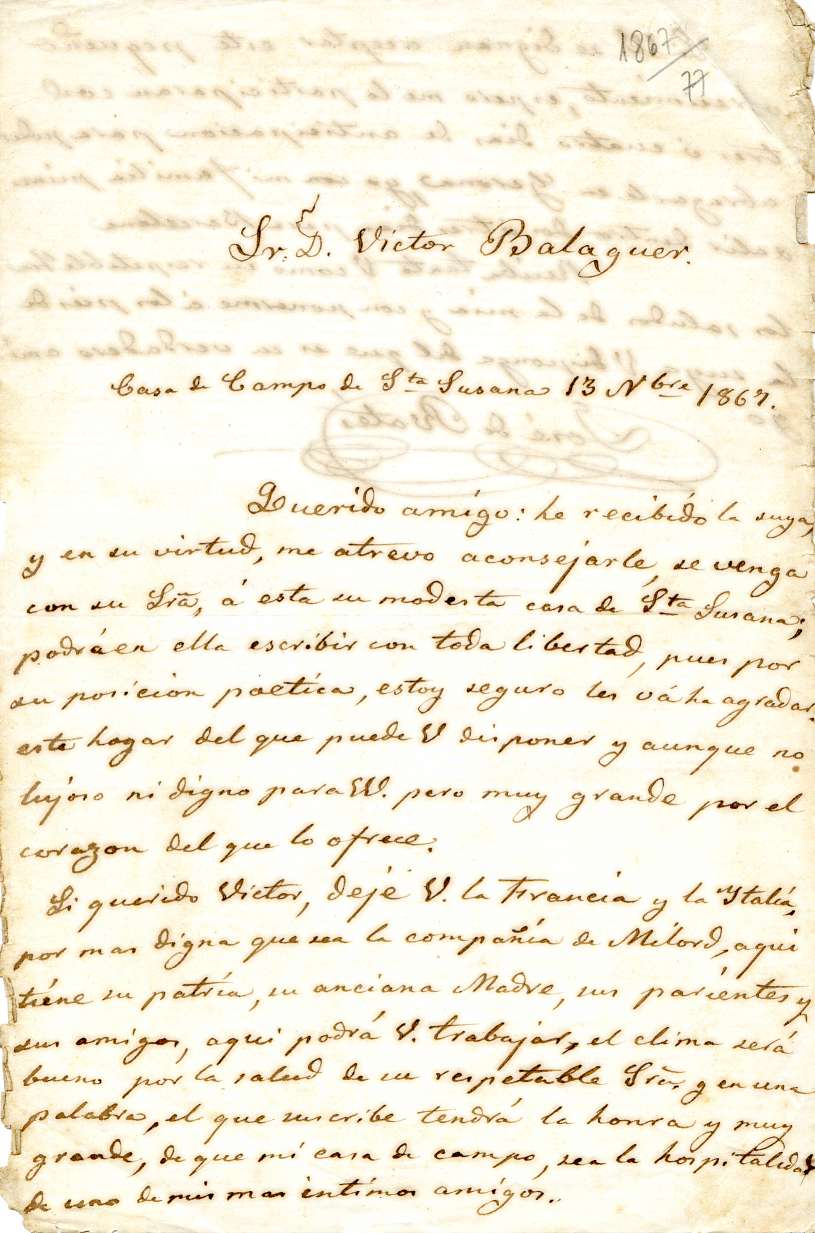 1867
77
Sr. D. Victor Balaguer.
Casa de Campo de Sta Susana 13 Nbre 1867.
Querido amigo: he recibido la suya,
y en su virtud, me atrevo aconsejarle, se venga
con su Sra, á esta su modesta casa de Sta Susana;
podrá en ella escribir con toda libertad, pues por
su posicion poetica, estoy seguro les vá ha agradar.
este hogar del que puede V disponer y aunque no
lujoso ni digno para VV. pero muy grande por el
corazon del que lo ofrece.
Si querido Victor, dejé V. la Francia y la Ytalia,
por mas digna que sea la compañía de Milord, aqui
tiéne su patría, su anciana Madre, sus pariéntes y
sus amigos, aqui podrá V. trabajar, el clima será
bueno por la salud de su respetable Sra. y en una
palabra, el que suscribe tendrá la honra y muy
grande, de que mi casa de campo, sea la hospitalidad
de uno de mis mas intimos amigos.